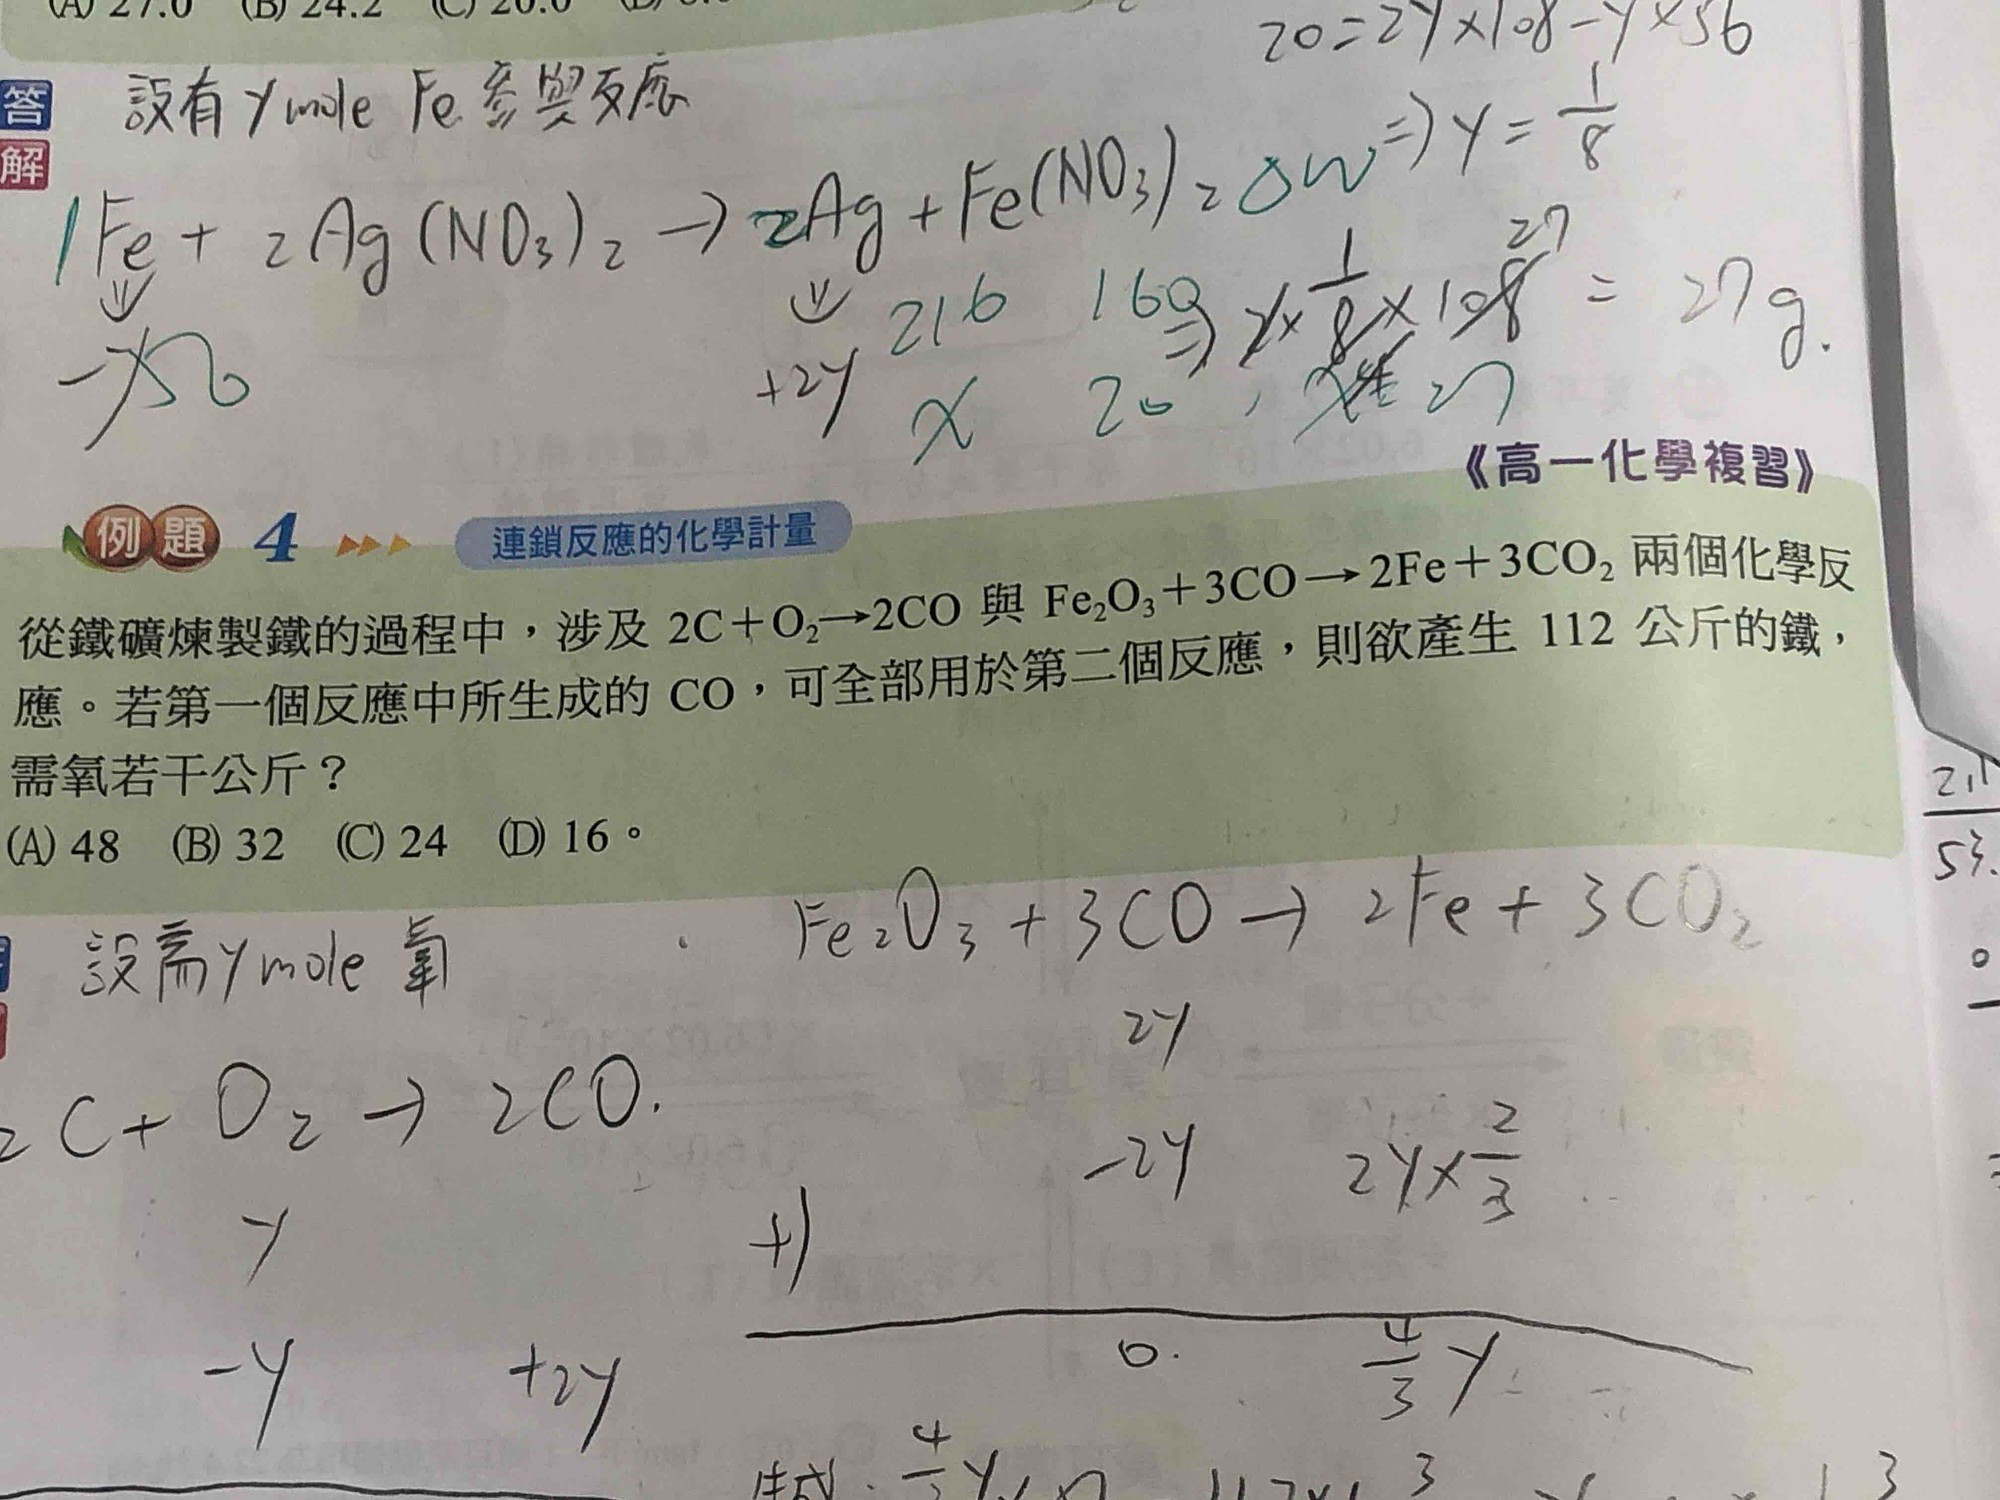 (A) 27.0 (B) 24.2 (C) 20.0
20=2y×108-y×56
答 設有 y mole Fe 參與反應
⇒ y = 1/8
解
1Fe + 2Ag(NO₃)₂ → 2Ag + Fe(NO₃)₂ ΔW
216 160 ⇒ 2×1/8×108 27 = 27g.
-y56 +2y x 20 , 27
《高一化學複習》
例題 4 連鎖反應的化學計量
從鐵礦煉製鐵的過程中，涉及 2C＋O₂→2CO 與 Fe₂O₃＋3CO→2Fe＋3CO₂ 兩個化學反
應。若第一個反應中所生成的 CO，可全部用於第二個反應，則欲產生 112 公斤的鐵，
需氧若干公斤？
(A) 48 (B) 32 (C) 24 (D) 16。
設需 y mole 氧
2C + O₂ → 2CO.
y
-y +2y
Fe₂O₃ + 3CO → 2Fe + 3CO₂
2y
-2y 2y×2/3
+)
0. 4/3 y
53.